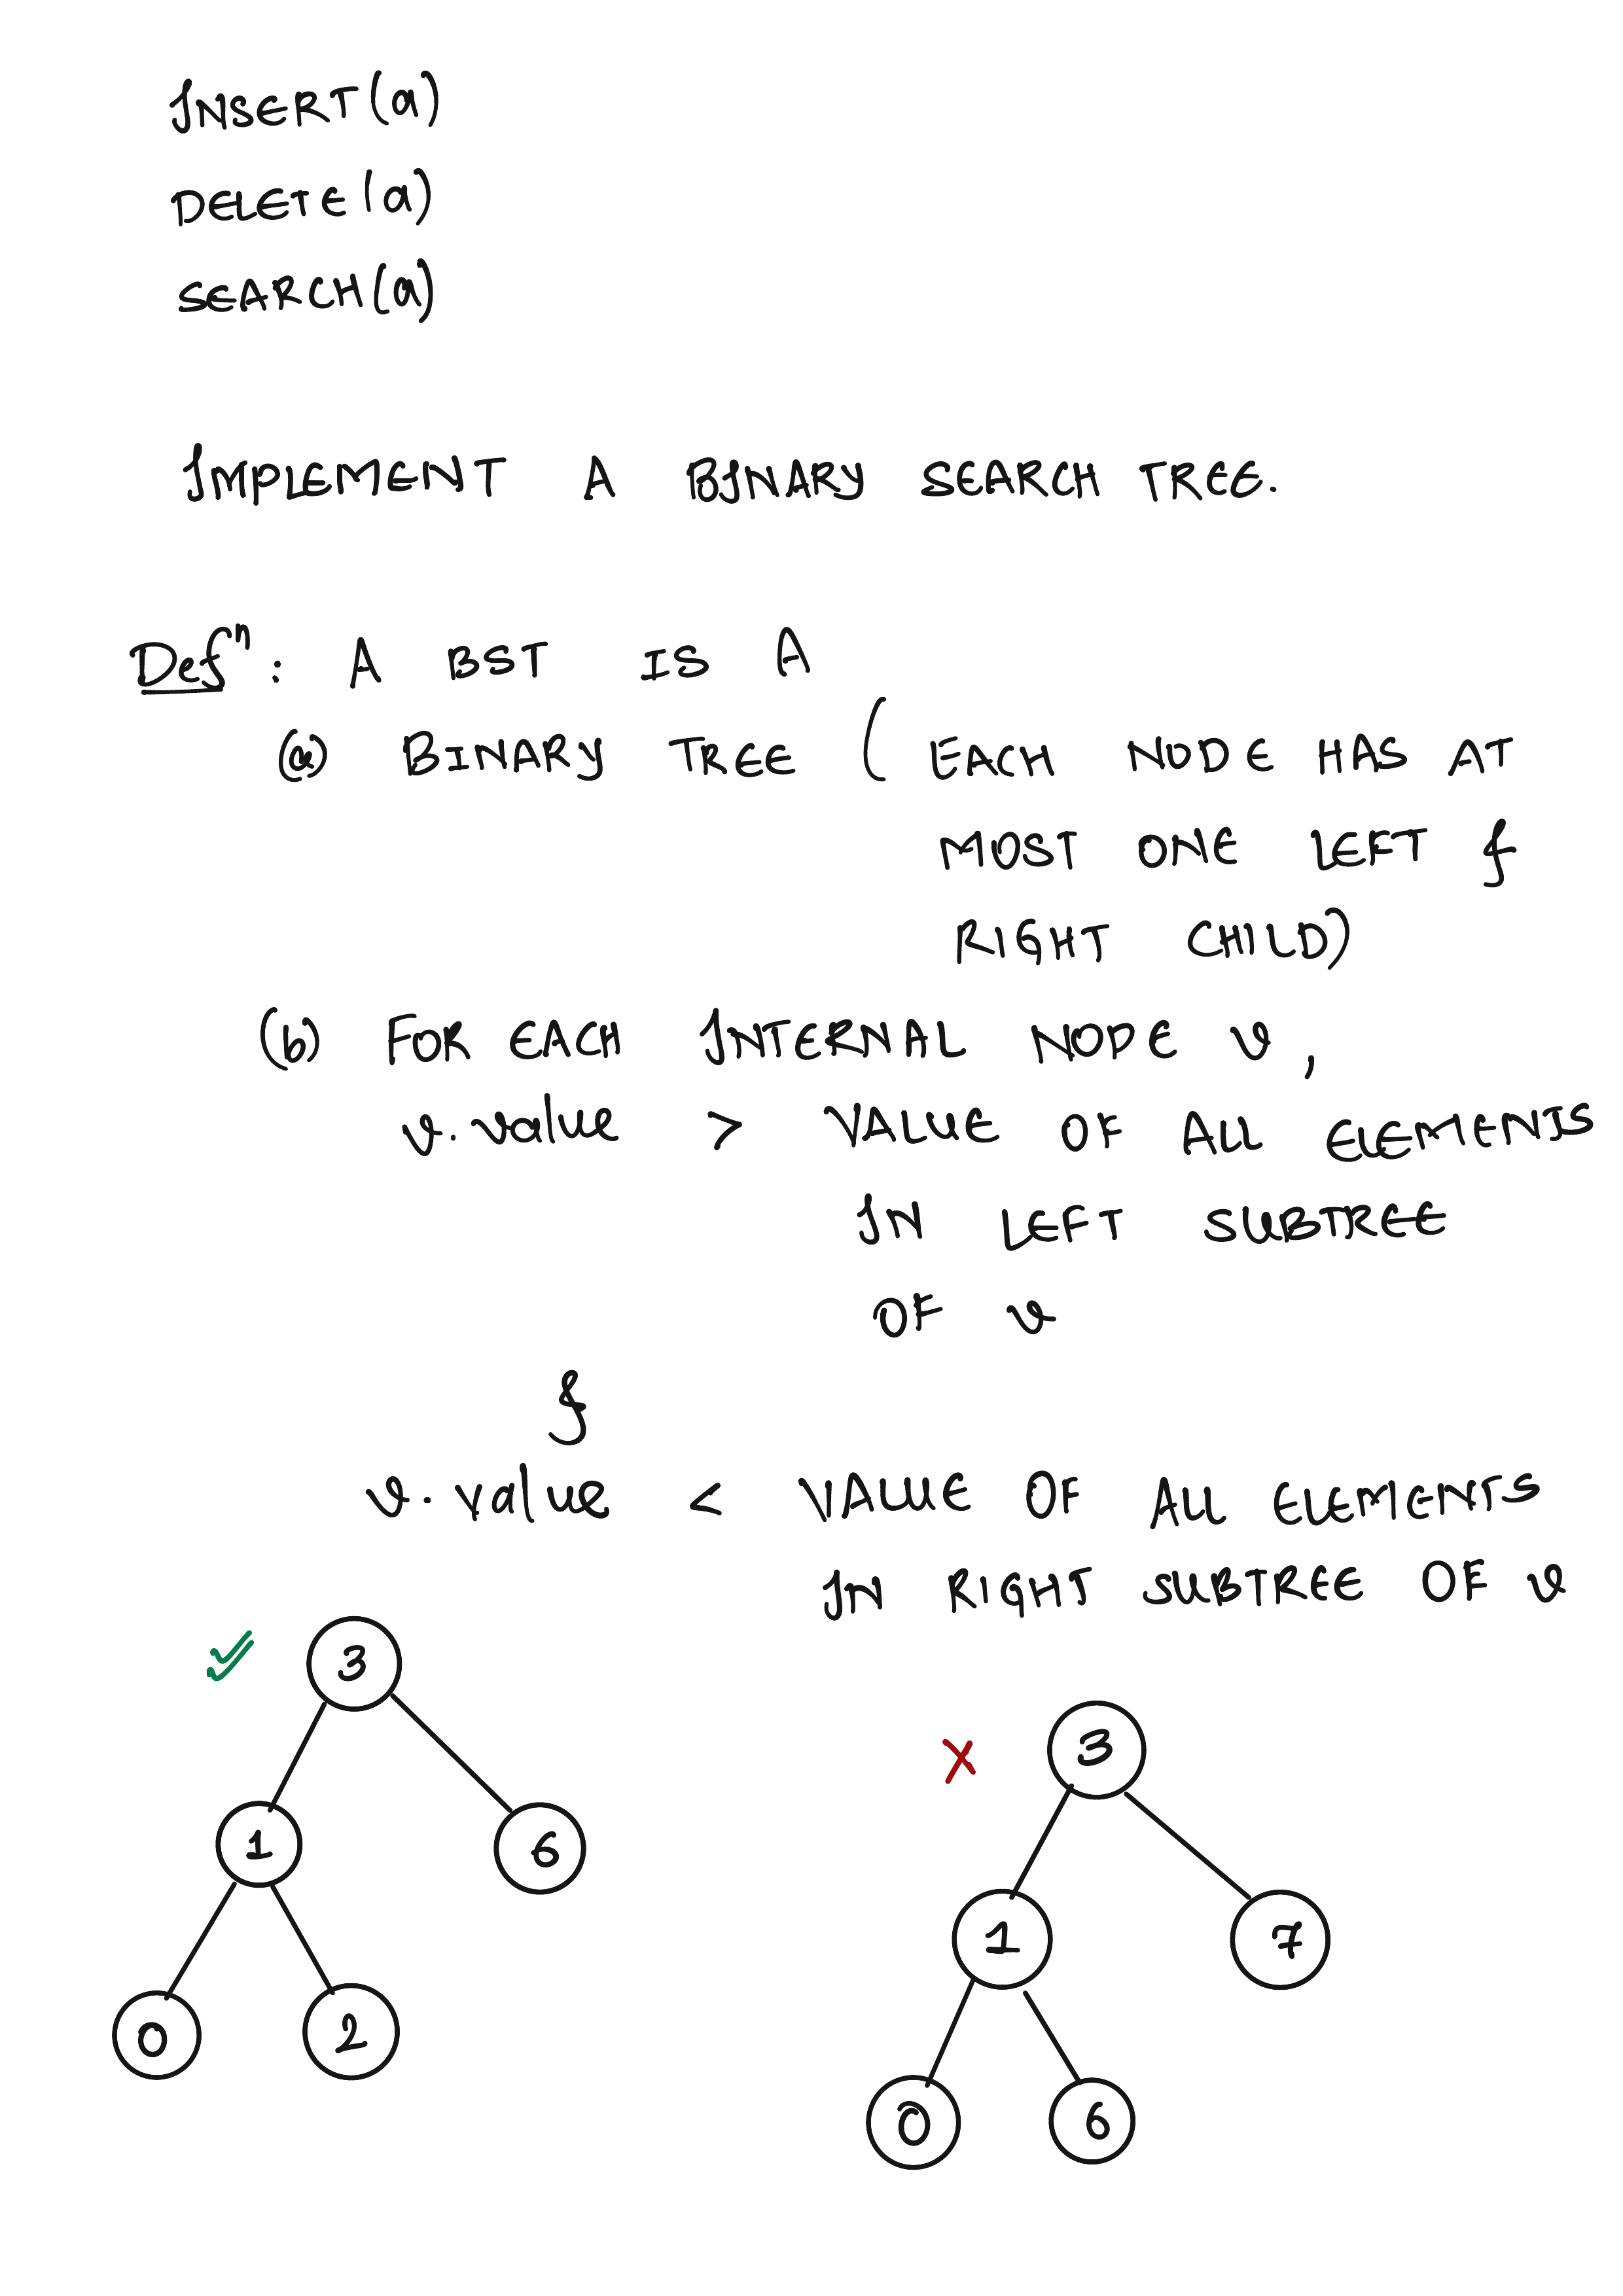 INSERT(a)
DELETE(a)
SEARCH(a)
IMPLEMENT A BINARY SEARCH TREE.
Defⁿ: A BST IS A
(a) BINARY TREE ( EACH NODE HAS AT
MOST ONE LEFT &
RIGHT CHILD)
(b) FOR EACH INTERNAL NODE v,
v.value > VALUE OF ALL ELEMENTS
IN LEFT SUBTREE
OF v
&
v.value < VALUE OF ALL ELEMENTS
IN RIGHT SUBTREE OF v
3
3
1 6
1 7
0 2
0 6